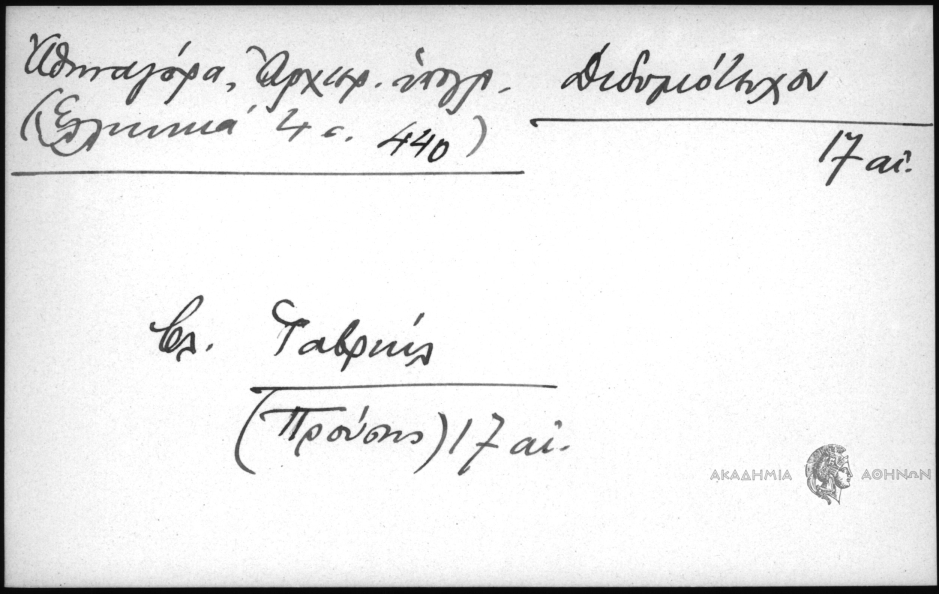 Ἀθηναγόρα, Ἀρχιερ. ὑπογρ.
(Ἑλληνικά 4 σ. 440)
Διδυμότειχον
17 αἰ.
βλ. Γαβριήλ
(Προύσης) 17 αἰ.
ΑΚΑΔΗΜΙΑ ΑΘΗΝΩΝ